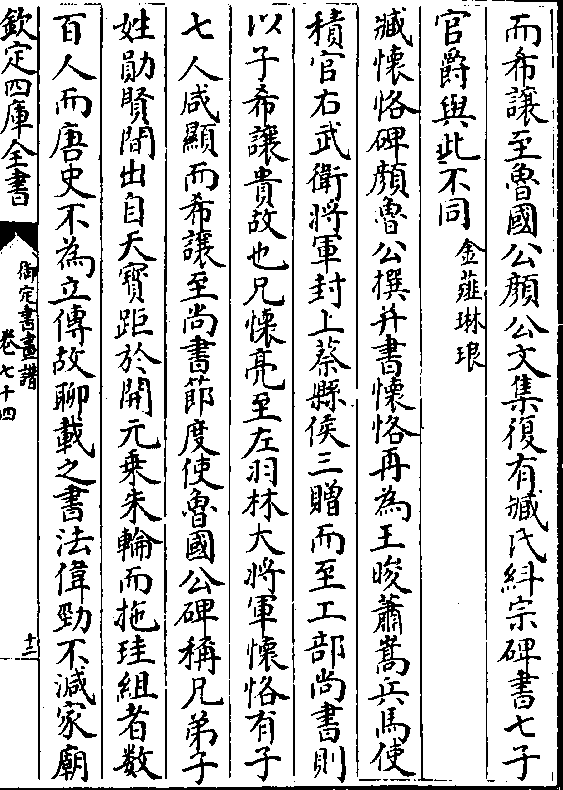 而希讓至魯國公顔公文集復有臧氏糾宗碑書七子
官爵與此不同金薤琳琅
臧懷恪碑顔魯公撰并書懷恪再為王晙蕭嵩兵馬使
積官右武衛將軍封上蔡縣侯三贈而至工部尚書則
以子希讓貴故也兄懷亮至左羽林大將軍懷恪有子
七人咸顯而希讓至尚書節度使魯國公碑稱兄弟子
姓勛賢間出自天寶距於開元乗朱輪而拖珪組者數
百人而唐史不為立傳故聊載之書法偉勁不減家廟
欽定四庫全書
御定書畫譜
卷七十四
十三